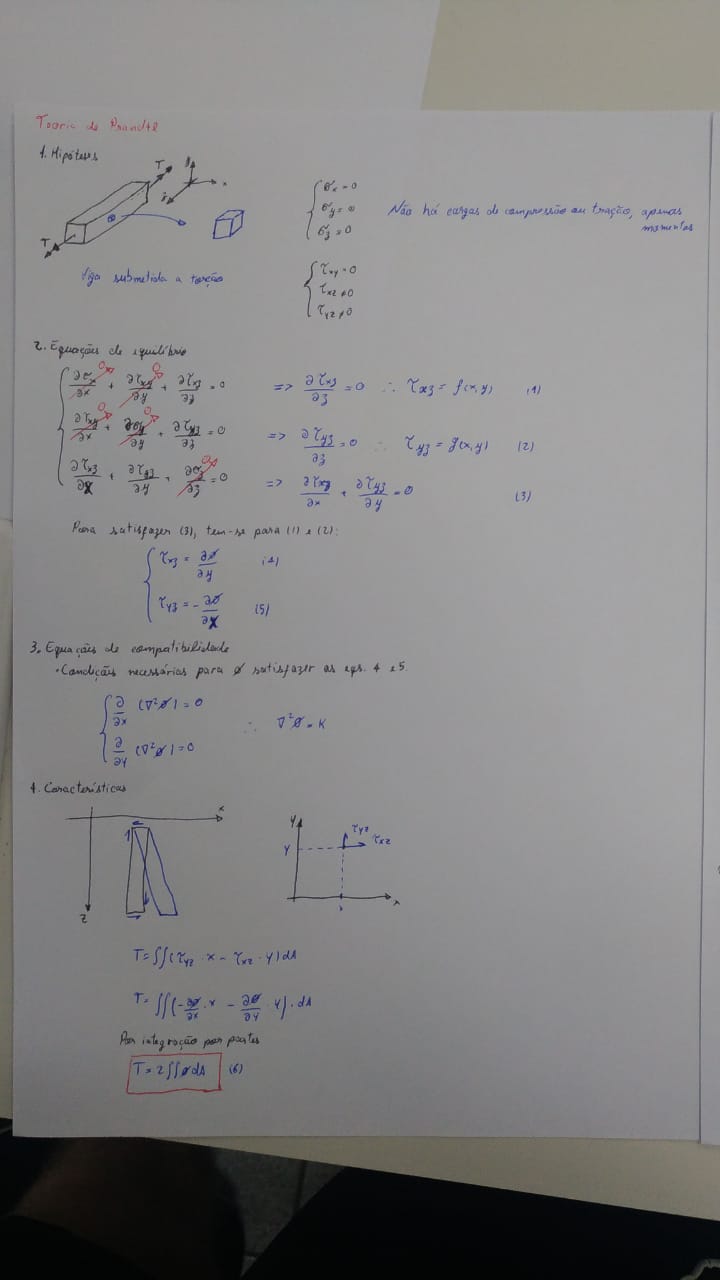 Teoria de Prandtl
1. Hipóteses
T
y
x
z
T
Viga submetida a torção
σx = 0
σy = 0
σz = 0
Não há cargas de compressão ou tração, apenas
momentos
τxy = 0
τxz ≠ 0
τyz ≠ 0
2. Equações de equilíbrio
∂σx/∂x + ∂τxy/∂y + ∂τxz/∂z = 0 => ∂τxz/∂z = 0 ∴ τxz = f(x,y) (1)
∂τxy/∂x + ∂σy/∂y + ∂τyz/∂z = 0 => ∂τyz/∂z = 0 ∴ τyz = g(x,y) (2)
∂τxz/∂x + ∂τyz/∂y + ∂σz/∂z = 0 => ∂τxz/∂x + ∂τyz/∂y = 0 (3)
Para satisfazer (3), tem-se para (1) e (2):
τxz = ∂ø/∂y (4)
τyz = -∂ø/∂x (5)
3. Equações de compatibilidade
• Condições necessárias para ø satisfazer as eqs. 4 e 5.
∂/∂x (∇²ø) = 0
∴ ∇²ø = K
∂/∂y (∇²ø) = 0
4. Características
x
z
y
τyz
τxz
y
x
T = ∬(τyz · x - τxz · y) dA
T = ∬(-∂ø/∂x · x - ∂ø/∂y · y) · dA
Por integração por partes
T = 2∬ø dA (6)